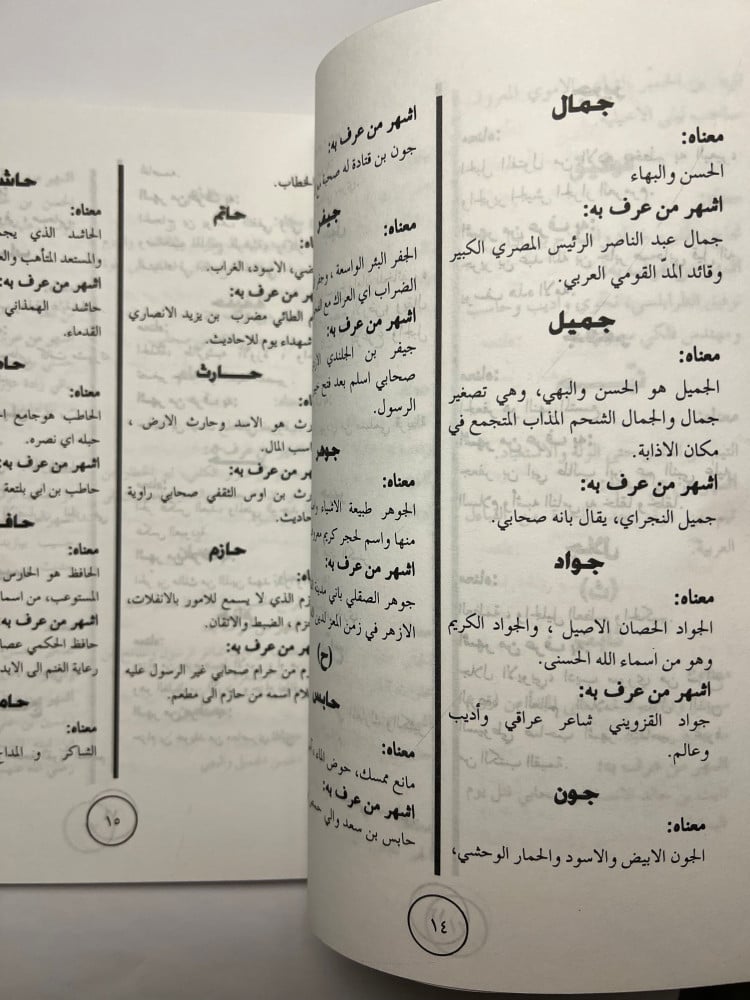 جمال
معناه:
الحسن والبهاء
اشهر من عرف به:
جمال عبد الناصر الرئيس المصري الكبير
وقائد المدّ القومي العربي.
جميل
معناه:
الجميل هو الحسن والبهي، وهي تصغير
جمال والجمال الشحم المذاب المتجمع في
مكان الاذابة.
اشهر من عرف به:
جميل النجراي، يقال بانه صحابي.
جواد
معناه:
الجواد الحصان الاصيل ، والجواد الكريم
وهو من أسماء الله الحسنى.
اشهر من عرف به:
جواد القزويني شاعر عراقي وأديب
وعالم.
جون
معناه:
الجون الابيض والاسود والحمار الوحشي،
اشهر من عرف به:
جون بن قتادة له
جيفر
معناه:
الجفر البئر الواسعة ،
الضراب اي العراك مع
اشهر من عرف به:
جيفر بن الجلندي
صحابي اسلم بعد فتح
الرسول.
جوهر
معناه:
الجوهر طبيعة الاشياء
منها واسم لحجر كريم
اشهر من عرف به:
جوهر الصقلي باني مدينة
الازهر في زمن المعز لدين
(ح)
حابس
معناه:
مانع ممسك، حوض الماء،
اشهر من عرف به:
حابس بن سعد والي
١٤
الخطاب.
حاتم
الاسود، الغراب.
من عرف به:
الطائي مضرب بن يزيد الانصاري
شهداء يوم للاحاديث.
حارث
هو الاسد وحارث الارض ،
المال.
من عرف به:
بن اوس الثقفي صحابي راوية
حازم
الذي لا يسمع للامور بالانفلات،
، الضبط والاتقان.
من عرف به:
من حرام صحابي غير الرسول عليه
اسمه من حازم الى مطعم.
معناه:
الحاشد الذي
والمستعد المتأهب
اشهر من عرف به:
حاشد الهمذاني
القدماء.
معناه:
الحاطب هوجامع
حبله اي نصره.
اشهر من عرف به:
حاطب بن ابي بلتعة
معناه:
الحافظ هو الحارس
المستوعب، من
اشهر من عرف به:
حافظ الحكمي
رعاية الغنم الى
معناه:
الشاكر و
١٥